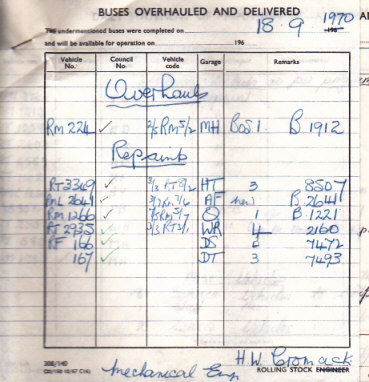 BUSES OVERHAULED AND DELIVERED
The undermentioned buses were completed on 18.9 1970
and will be available for operation on 196
Vehicle No. Council No. Vehicle code Garage Remarks
Overhauls
RM 224 ✓ 2/2 RM5/2 MH Bos 1. B 1912
Repaints
RT 3349 ✓ 3/3 RT9/2 HT 3 8507
RML 2641 ✓ AF new B.2644
RM 1266 ✓ Q 1 B.1221
RT 2935 ✓ 3/3 RT3/1 WR 4 2160
RF 166 ✓ DS 2 7472
167 ✓ DT 3 7493
H.W. Cromack
Mechanical Eng
ROLLING STOCK ENGINEER